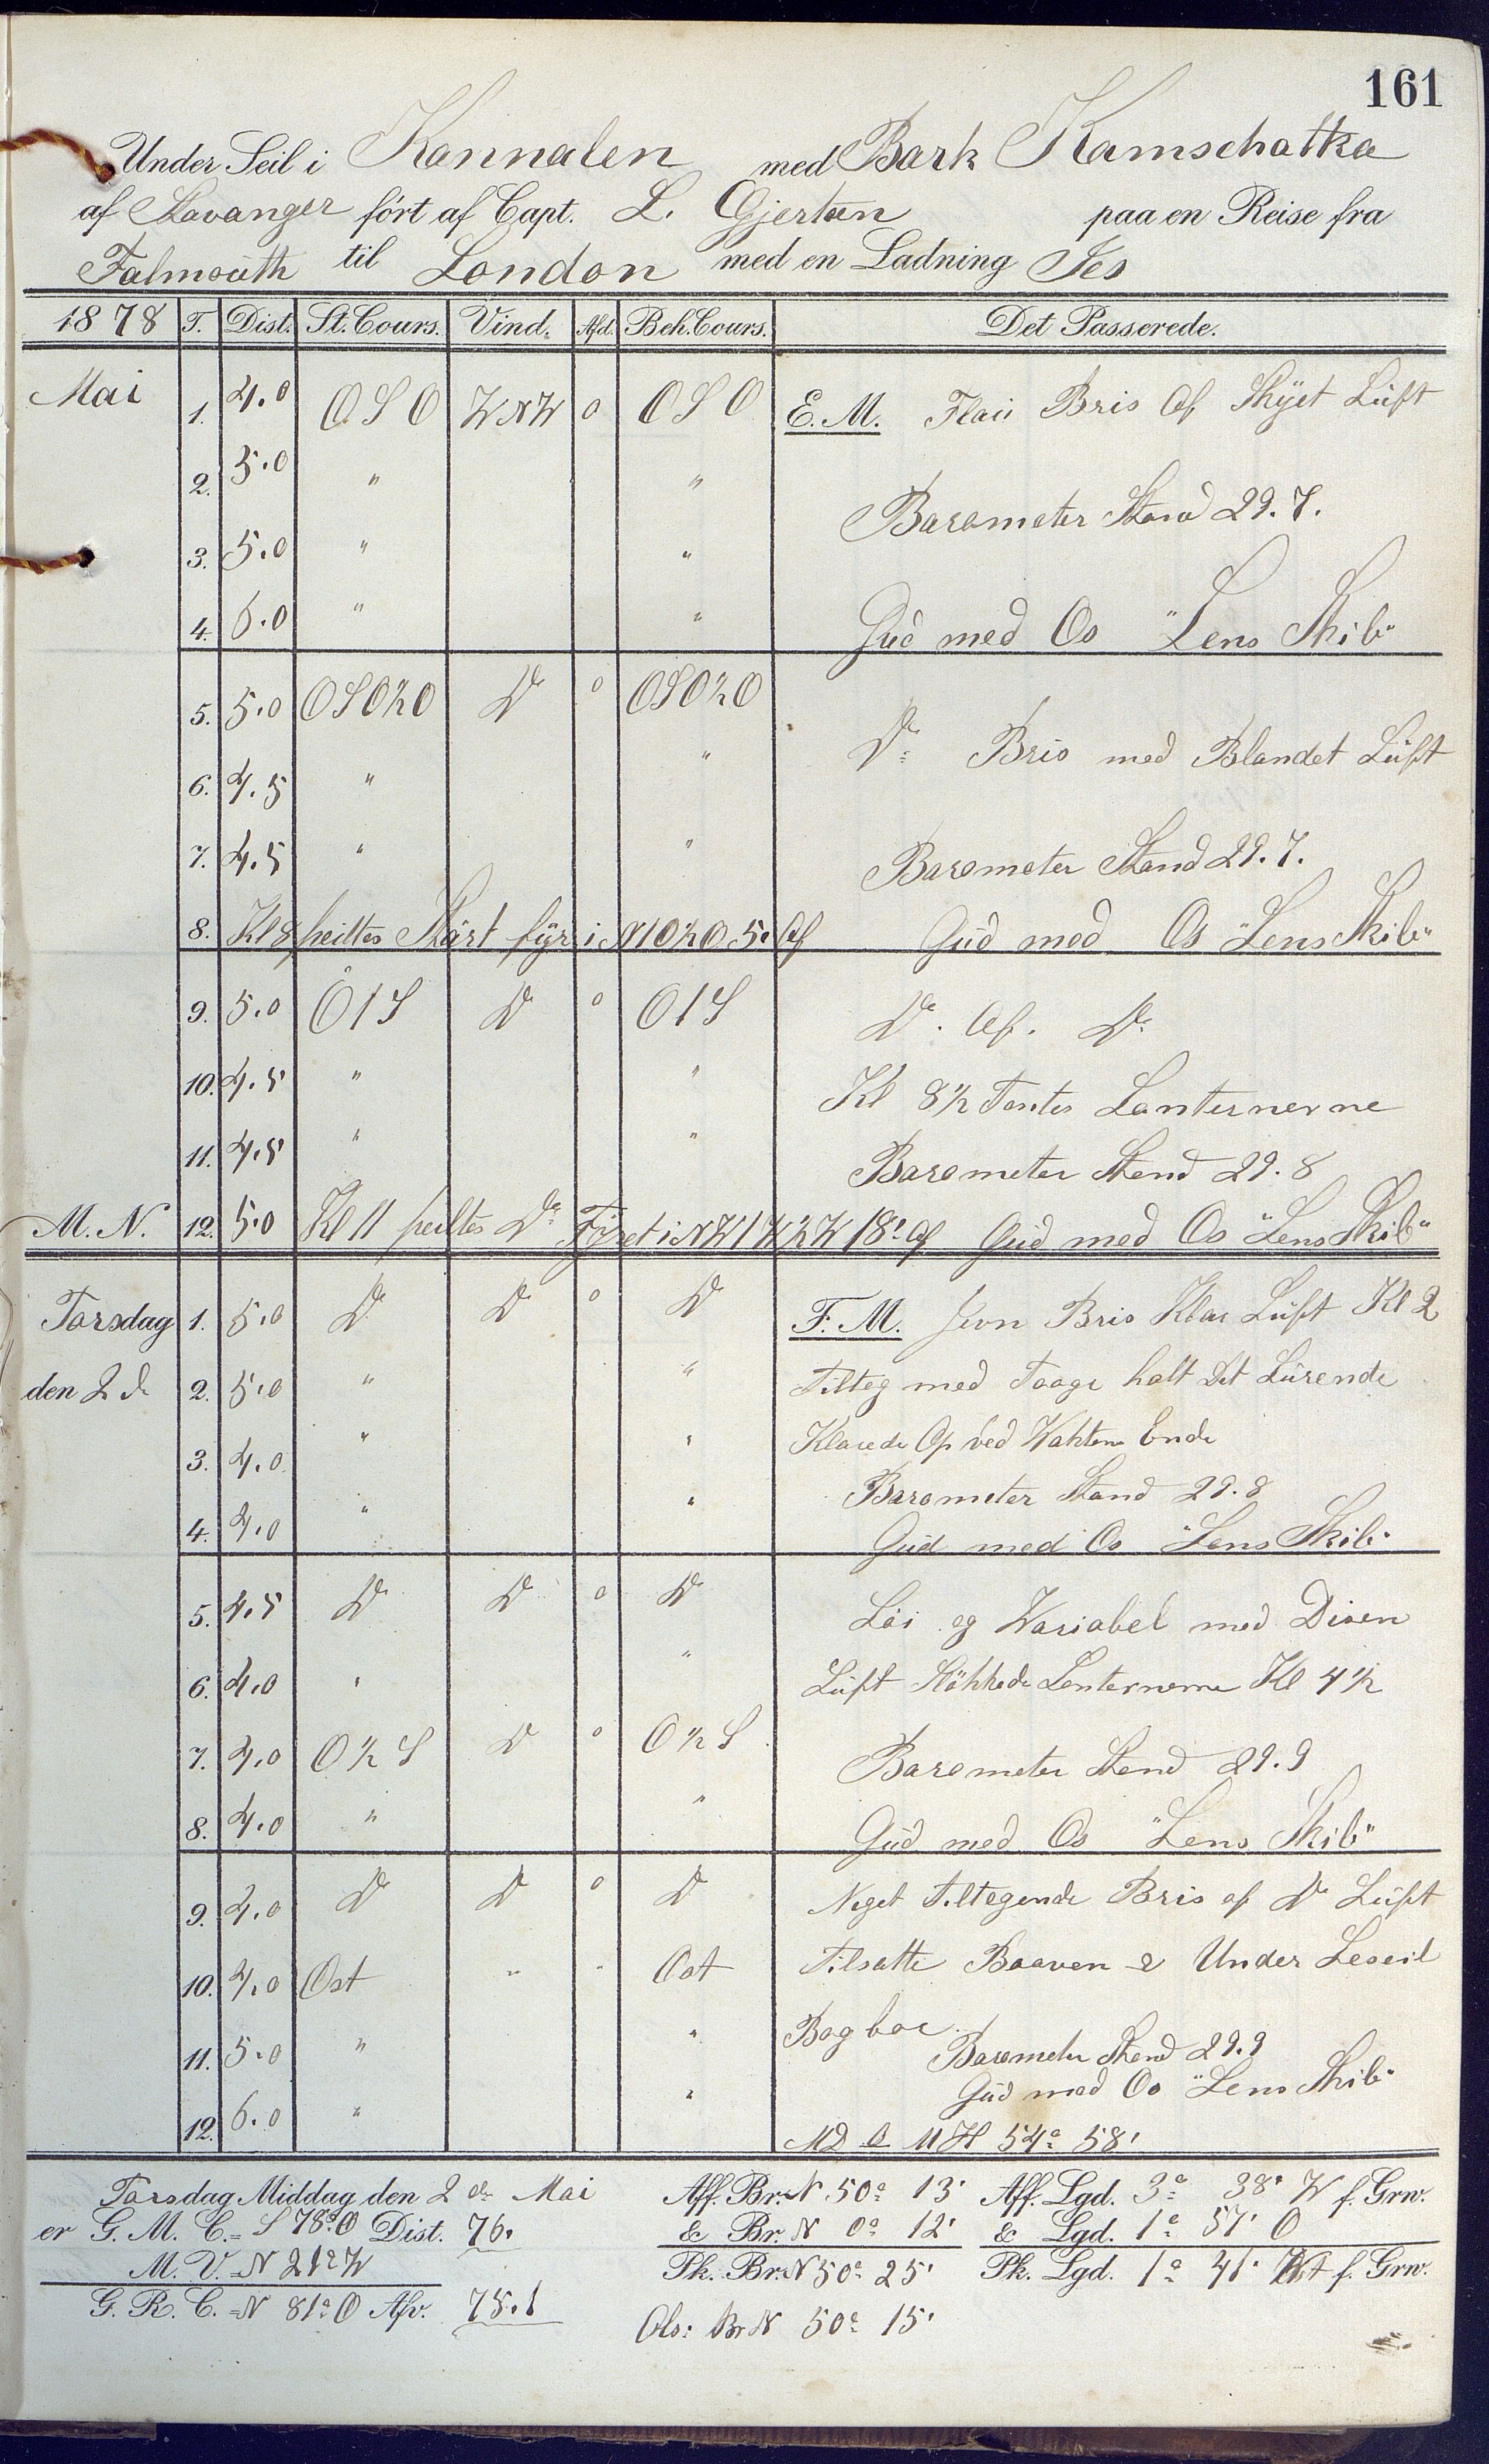 161
Under Seil i Kannalen med Bark Kamschatka
af Stavanger ført af Capt. L. Gjertsen paa en Reise fra
Falmouth til London med en Ladning Ies
1878 T. Dist. St. Cours. Vind. Afd. Beh. Cours. Det Passerede.
Mai 1. 4.0 OSO WNW 0 OSO E.M. Flau Bris Af Skyet Lüft
2. 5.0 " "
Barometer Stand 29.7.
3. 5.0 " "
4. 6.0 " " Gud med Os "Lens Skib"
5. 5.0 OSO½O Do 0 OSO½O
Do Bris med Blandet Lüft
6. 4.5 " "
7. 4.5 " " Barometer Stand 29.7.
8. Kl 8 peiltes Stärt fyr i N1O½O 5' Af Gud med Os "Lens Skib"
9. 5.0 O1S Do 0 O1S Do. Af. Do
10. 4.5 " " Kl 8½ Tentes Lanternerne
11. 4.5 " " Barometer Stand 29.8
M.N. 12. 5.0 Kl 11 peiltes Do Fyret i NW1W½W 18' af Gud med Os "Lens Skib"
Torsdag 1. 5.0 Do Do 0 Do F.M. Jevn Bris Klar Lüft Kl 2
den 2 de 2. 5.0 " " Tilteg med Taage halt Det Lurende
3. 4.0 " " Klarede Op ved Vahtens Ende
Barometer Stand 29.8
4. 4.0 " " Gud med Os "Lens Skib"
5. 4.5 Do Do 0 Do Löi og Variabel med Disen
6. 4.0 " " Lüft Slökkede Lanternerne Kl 4½
7. 4.0 O½S Do 0 O½S Barometer Stand 29.9
8. 4.0 " " Gud med Os "Lens Skib"
9. 4.0 Do Do 0 Do Noget Tiltagende Bris af Do Lüft
10. 4.0 Ost " " Ost Tilsatte Baaven & Under Leseil
11. 5.0 " " Bagbor
Barometer Stand 29.9
Gud med Os "Lens Skib"
12. 6.0 " " MD O UH 54° 58'
Torsdag Middag den 2 de Mai Aff. Br. N 50° 13' Aff. Lgd. 3° 38' W f. Grw.
er G. M. C. = S 78° O Dist. 76. & Br. N 0° 12' & Lgd. 1° 57' O
M. V. = N 21° W Pk. Br. N 50° 25' Pk. Lgd. 1° 41' Wt f. Grw.
G. R. C. = N 81° O Afv. 75.1
Obs: Br N 50° 15'